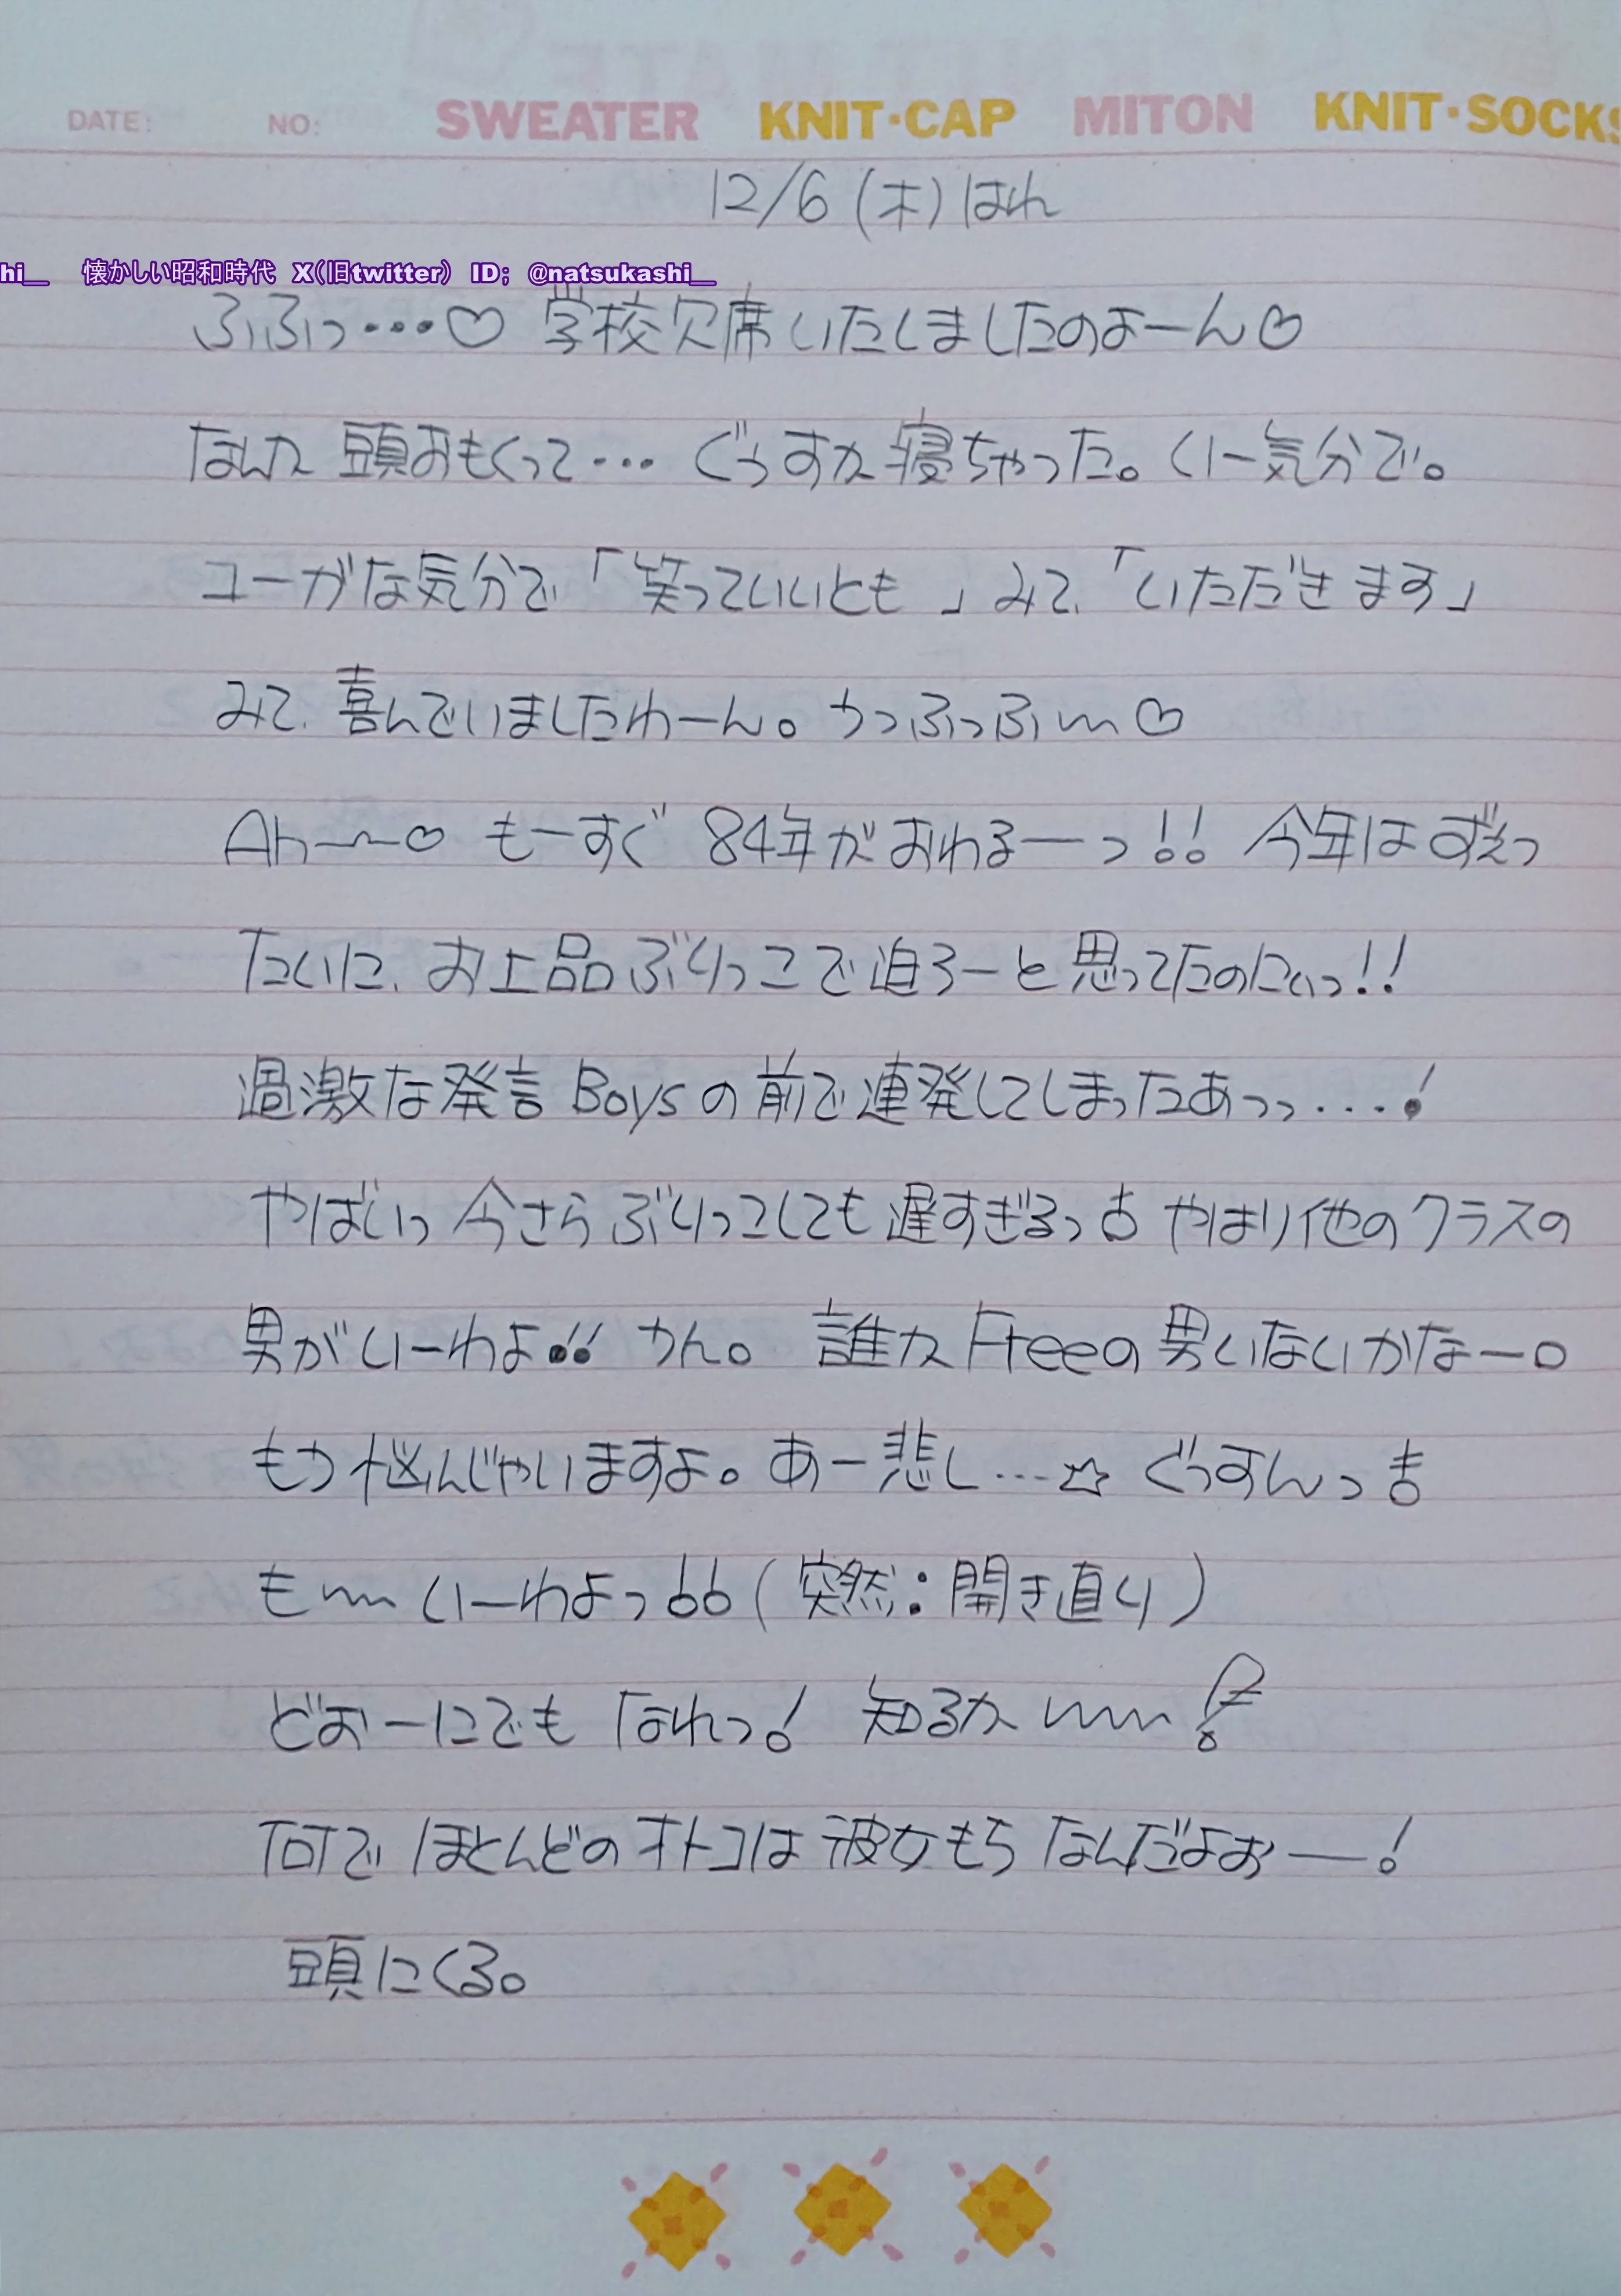 DATE: NO: SWEATER KNIT・CAP MITON KNIT・SOCKS
12/6 (木) はれ
hi__ 懐かしい昭和時代 X(旧twitter) ID; @natsukashi__
ふふっ…♡ 学校欠席いたしましたのよーん♡
なんか 頭おもくって… ぐうすか寝ちゃった。いー気分で。
ユーガな気分で「笑っていいとも」みて、「いただきます」
みて、喜んでいましたわーん。うっふっふ〜♡
Ah〜〜♡ もーすぐ 84年がおわるーっ!! 今年はずぇっ
たいに、お上品ぶりっこで迫ろーと思ってたのにいっ!!
過激な発言 Boysの前で連発してしまったあっっ...!
やばいっ 今さらぶりっこしても遅すぎるっ やはり他のクラスの
男がいーわよ!! うん。 誰かFreeの男いないかなー。
もう悩んじゃいますよ。あー悲し…☆ ぐっすんっ
も〜〜いーわよっ(突然:開き直り)
どおーにでも なれっ! 知るか〜〜!
何で ほとんどのオトコは彼女もち なんだよおー!
頭にくる。